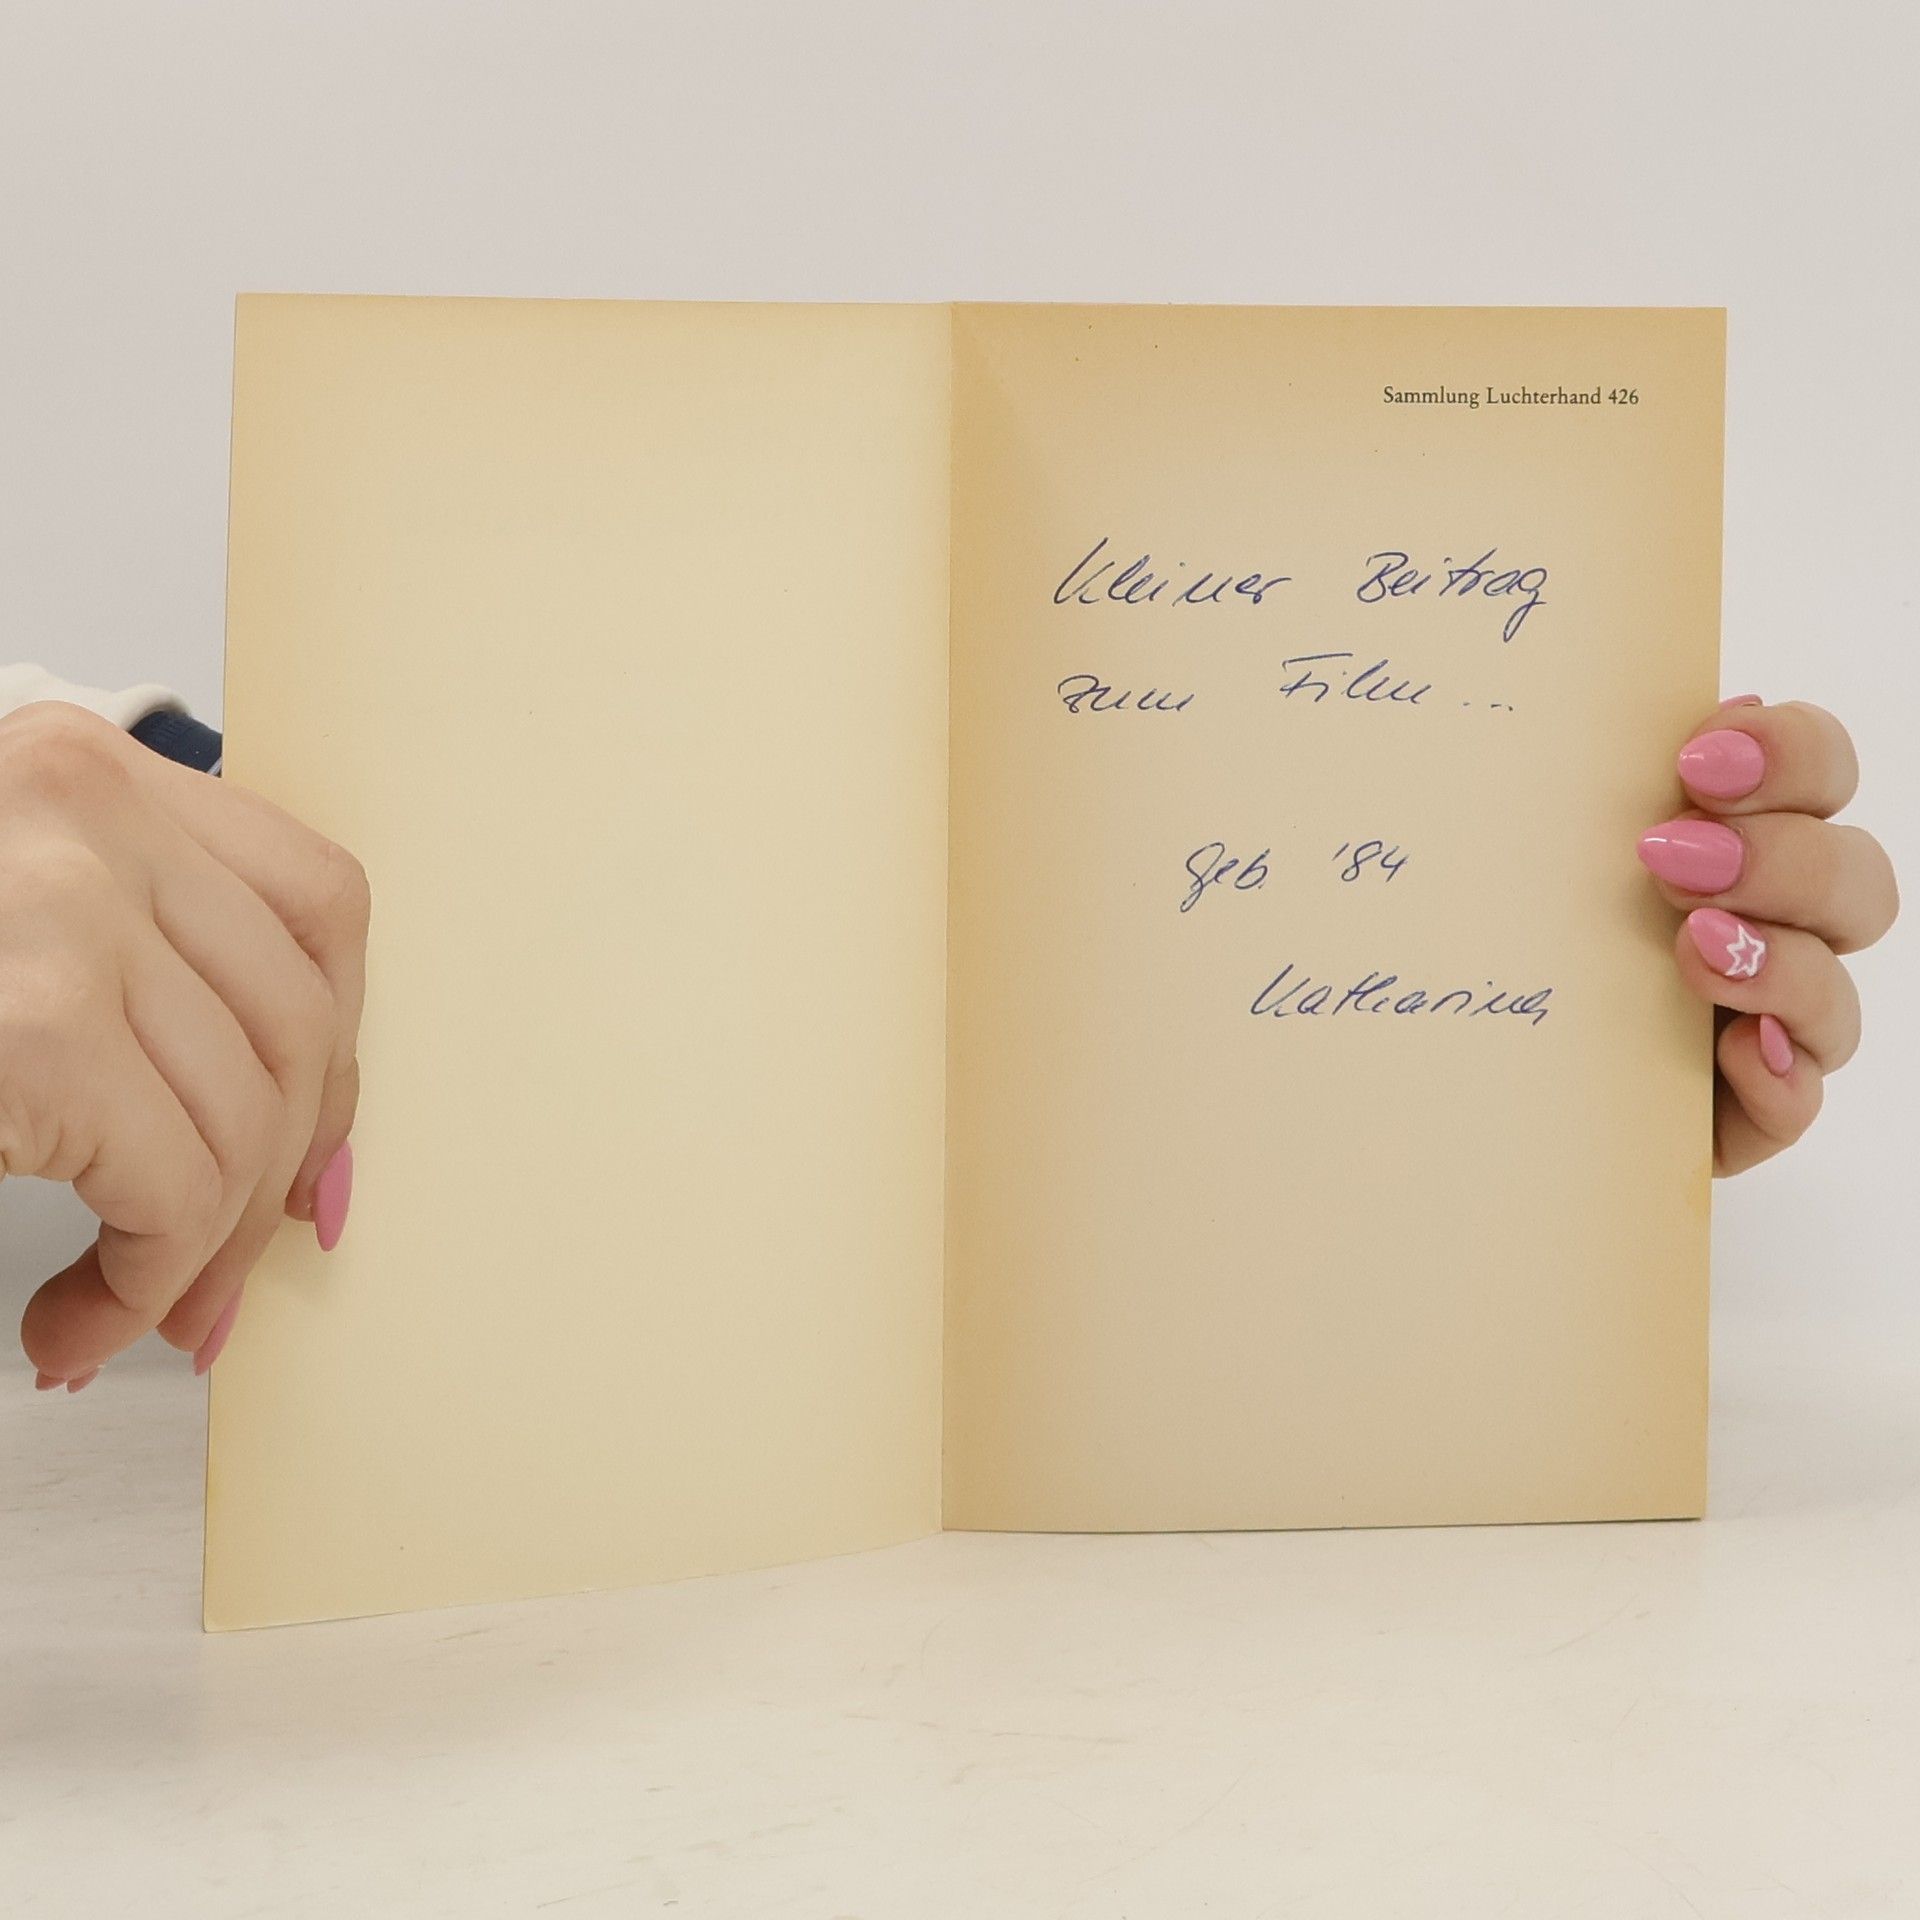 Sammlung Luchterhand 426
Kleiner Beitrag
zum Film...
Geb. '84
Katharina